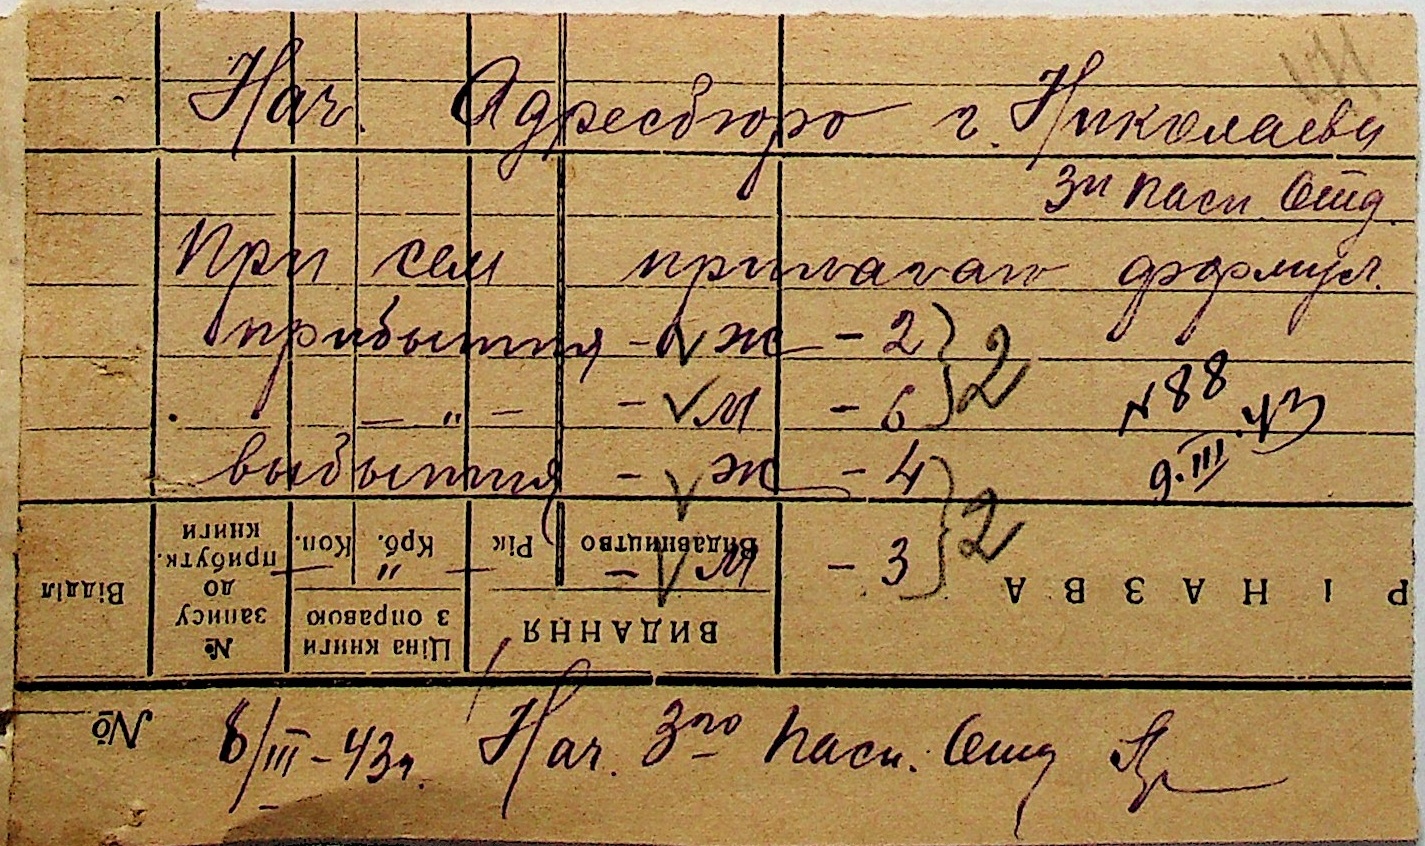 Нач. Адресбюро г. Николаева
3й пасп. Отд.
При сем прилагаю формул.
прибытия - ж - 2 } 2
— " — - м - 6
N 88
9.III.43
выбытия - ж - 4 } 2
— " — - м - 3
РІ НАЗВА
ВИДАННЯ
Видавництво
Рік
Ціна книги з оправою
Крб.
Коп.
№ запису до прибутк. книги
Відділ
№
8/III-43г. Нач. 3го пасп. Отд